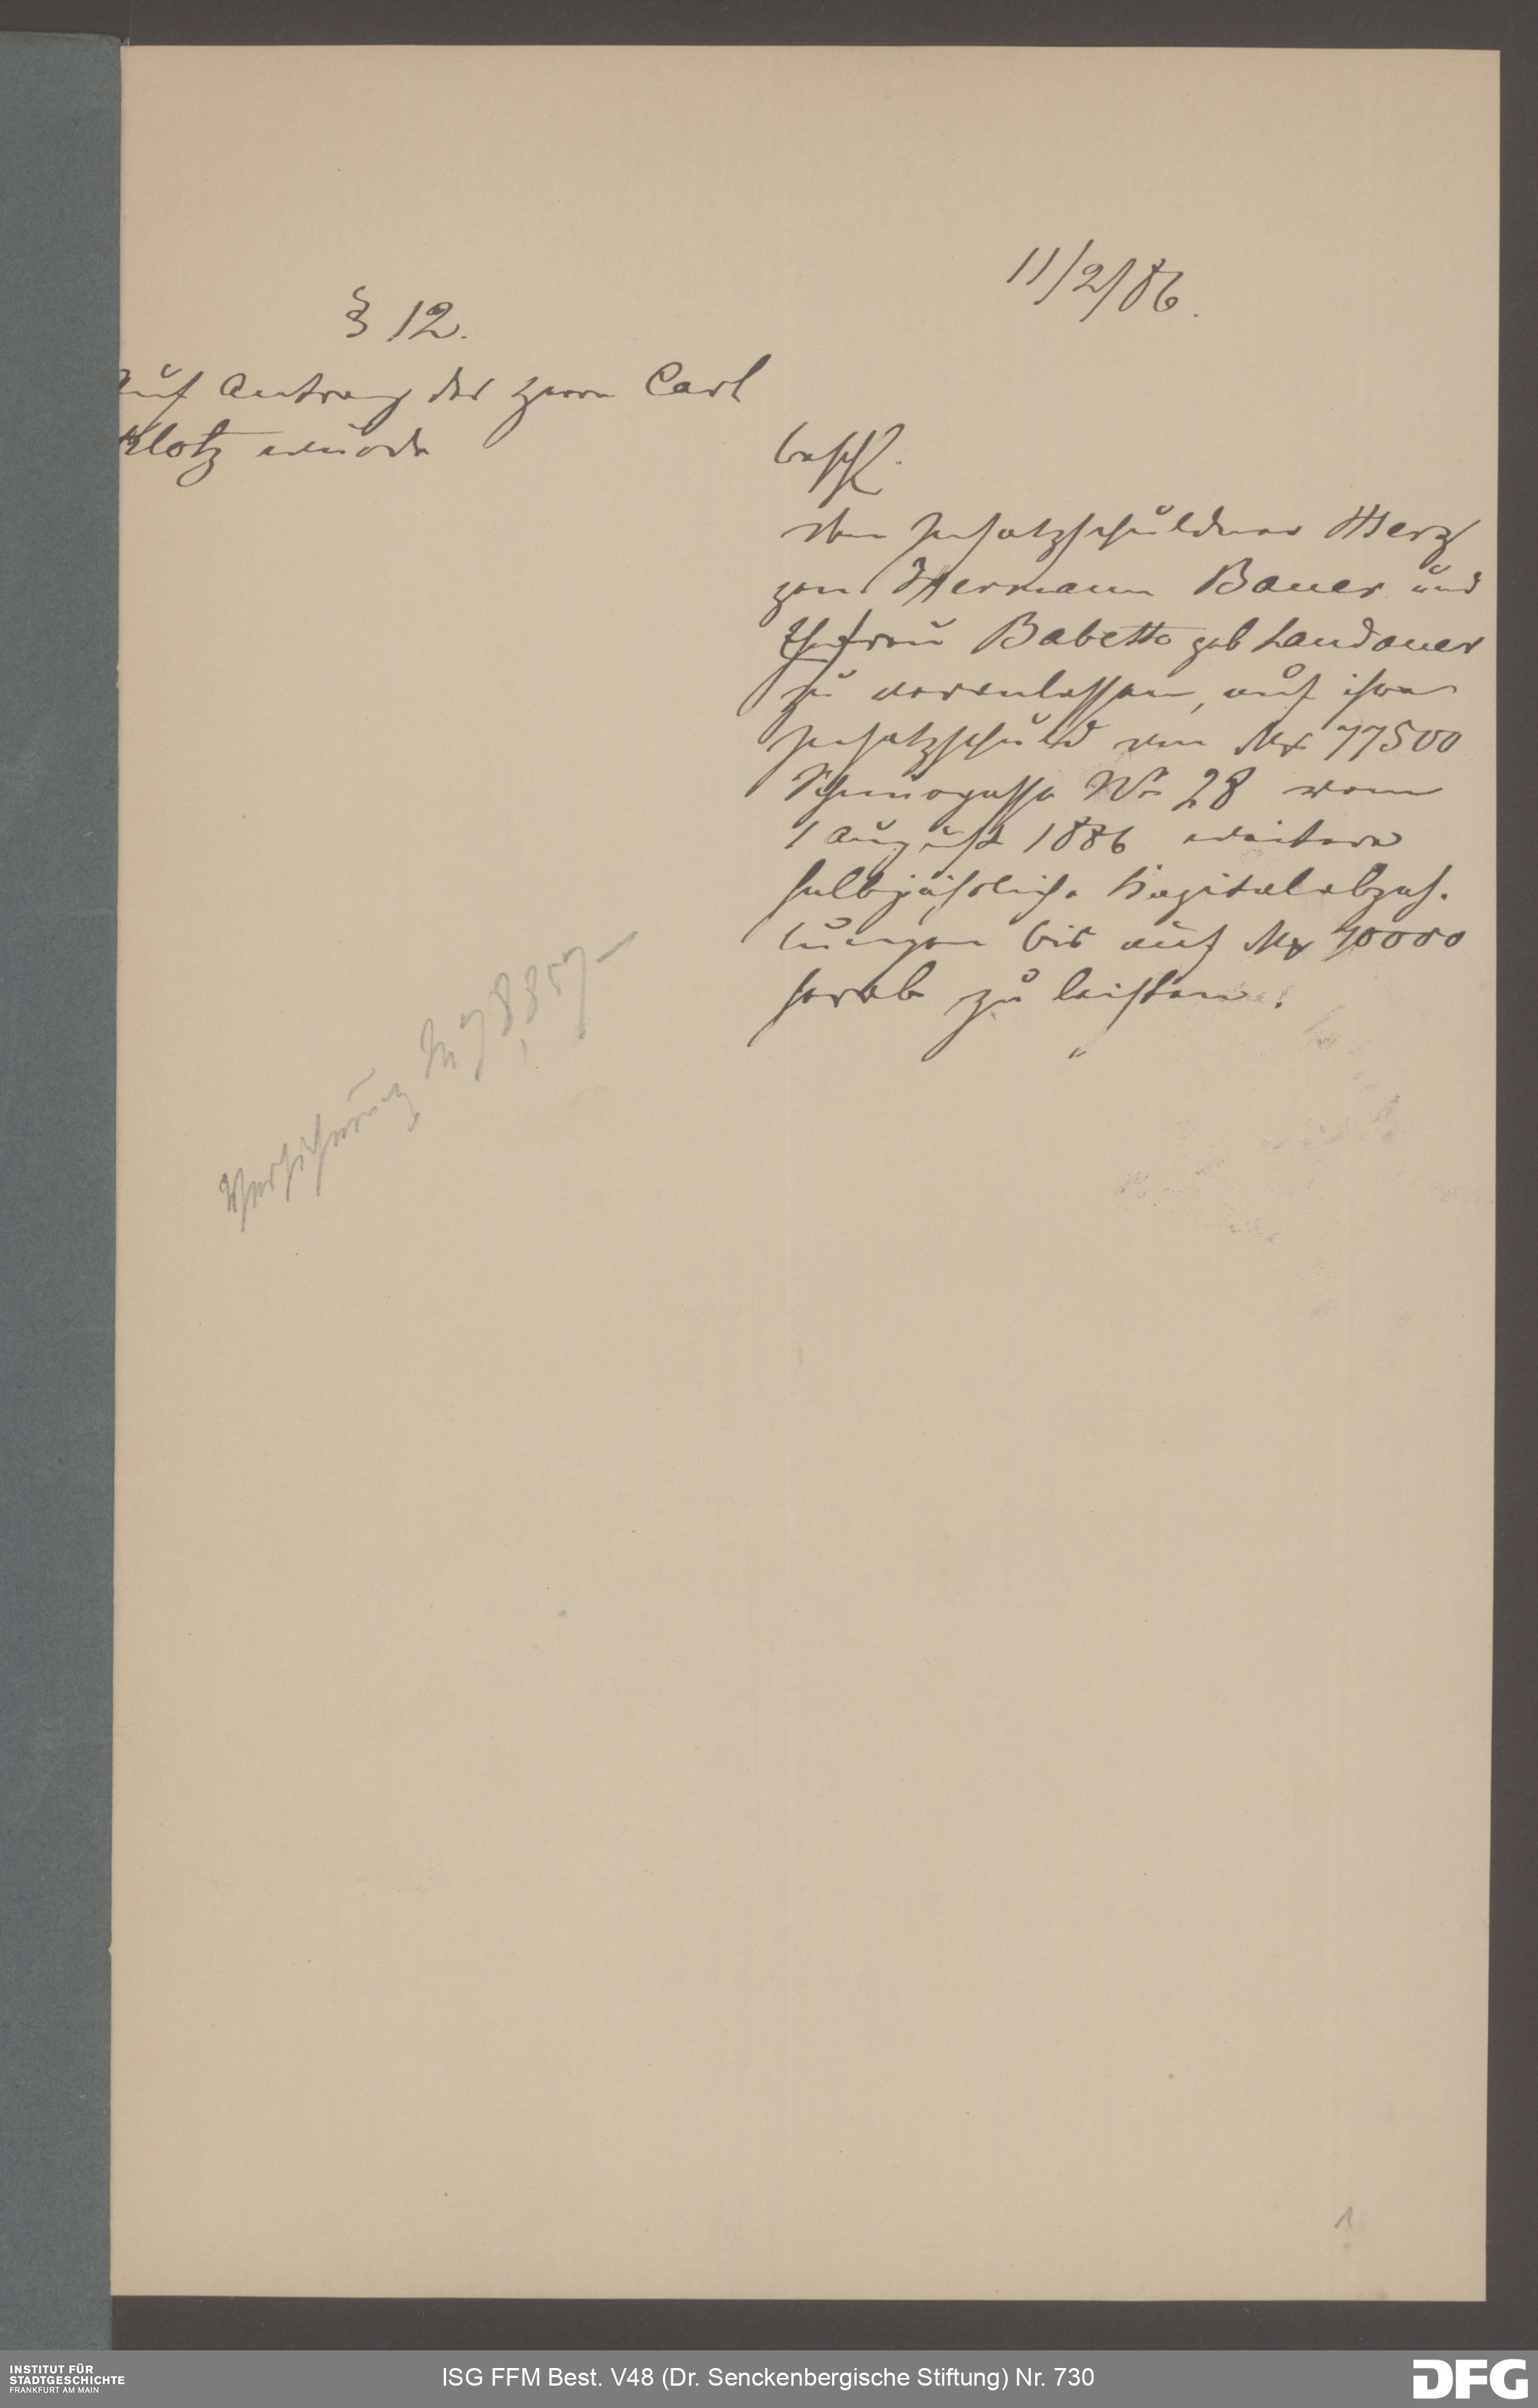 11/2/86.
§ 12.
Auf Antrag des Herrn Carl
Klotz wurde
beschl.
den Insatzschuldner Metz
ger Hermann Bauer und
Ehefrau Babette geb Landauer
zu veranlassen, auf ihre
Insatzschuld von Mk 77500
Schnurgasse No 28 vom
1 August 1886 weitere
halbjährliche Kapitalabzah-
lungen bis auf Mk 70000
herab zu leisten.
Versicherung M 78857-
1
INSTITUT FÜR
STADTGESCHICHTE
FRANKFURT AM MAIN
ISG FFM Best. V48 (Dr. Senckenbergische Stiftung) Nr. 730
DFG